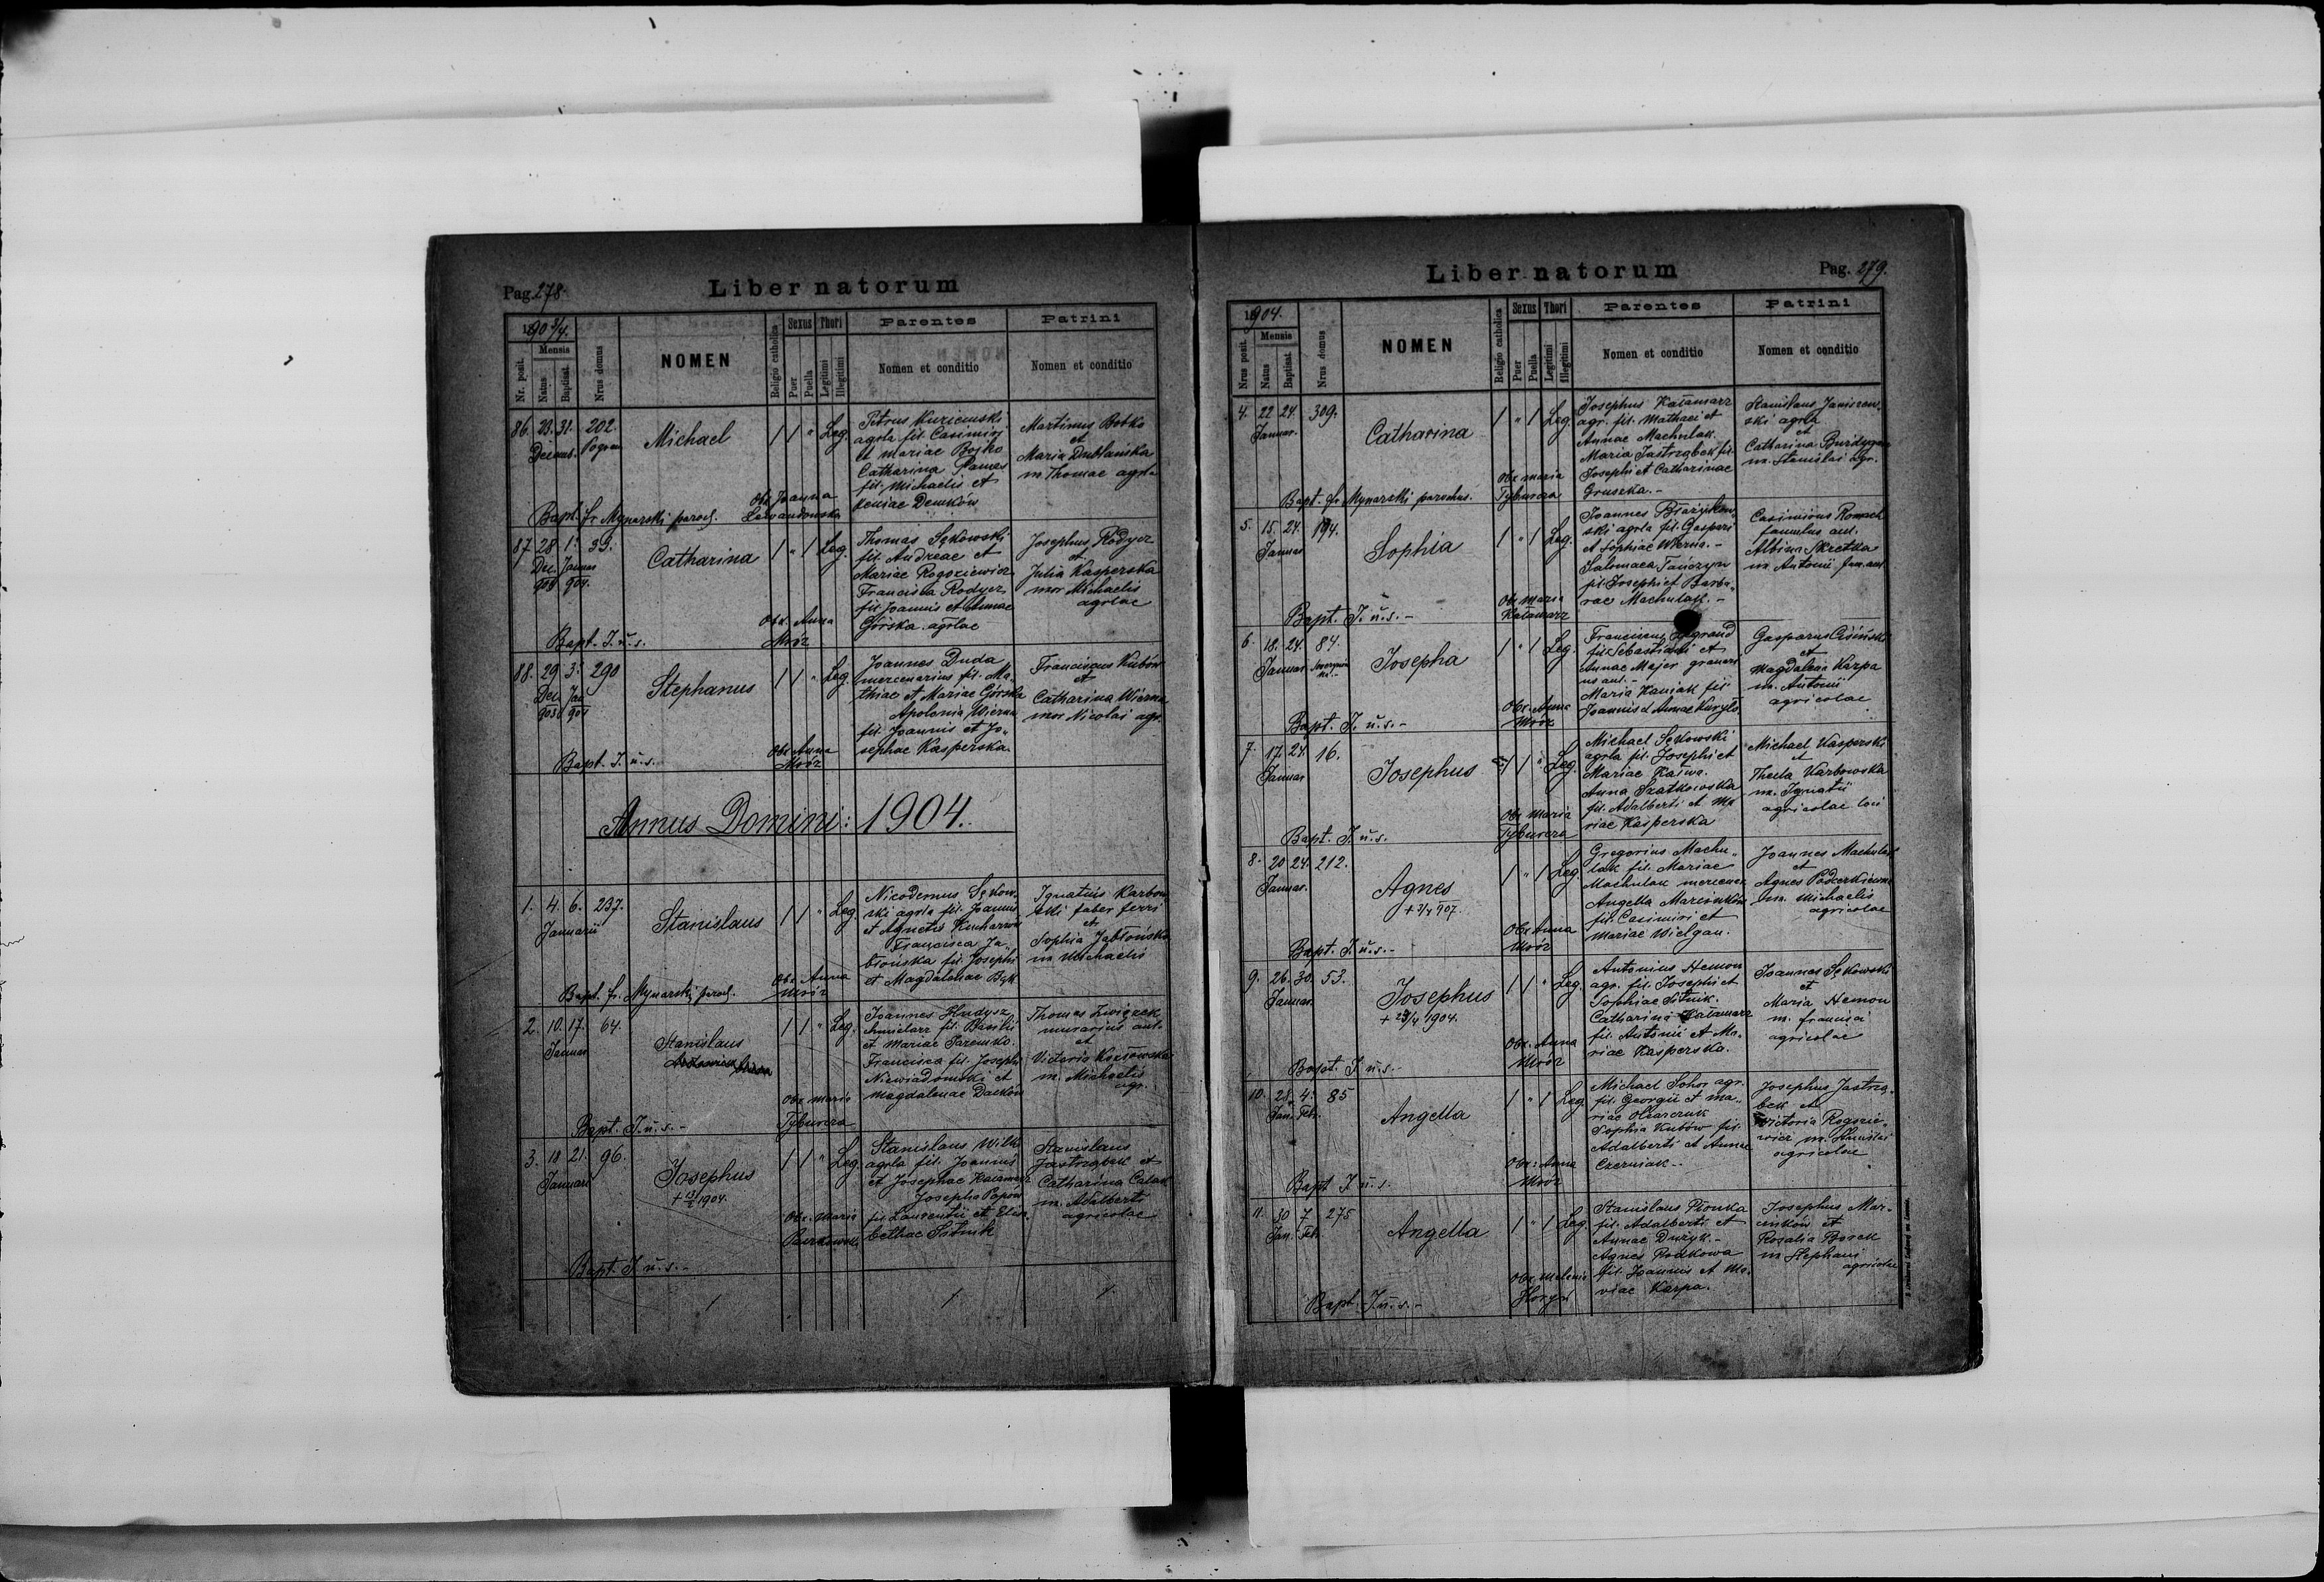 Pag. 278.
Liber natorum
190 3/4.
Nr. posit.
Mensis
Natus
Baptisat.
Nrus domus
NOMEN
Religio catholica
Sexus
Puer
Puella
Thori
Legitimi
Illegitimi
Parentes
Nomen et conditio
Patrini
Nomen et conditio
86. 23. 31. 202.
Michael
1 1 " Leg.
Petrus
agrla fil. Casimiri
et Mariae Bojko
Catharina
fil. Michaelis et
Demków
Martinus Bobko
et
Maria Dublańska
m Thomae agrla
Bapt. fr. Mynarski paroch.
Obx Joanna
Lewandowska
87 28. 1. 33.
Dec. Januar
903 904.
Catharina
1 " 1 Leg.
Thomas Sękowski
fil. Andreae et
Mariae Rogoziewicz
Francisca Rodycz
fil. Joannis et Annae
Górska agrlae
Josephus Rodycz
et
Julia Kasperska
mor Michaelis
agrlae
Bapt. I. u. s.
Obx. Anna
Mróz
88. 29 3. 290
Dec Jan
903 904
Stephanus
1 1 " Leg.
Joannes Duda
mercenarius fil. Ma„
thiae et Mariae Górska
Apolonia Wierna
fil. Joannis et Jo„
sephae Kasperska
Franciscus Kubów
et
Catharina Wierna
mor Nicolai agr.
Bapt. I. u. s.
Obx Anna
Mróz
Annus Domini: 1904.
1. 4. 6. 237.
Januarii
Stanislaus
1 1 " Leg.
Nicodemus Sękow„
ski agrla fil. Joannis
et Agnetis
Francisca Ja„
błońska fil. Josephi
et Magdalenae Bąk
Ignatius Karbow„
ski faber ferri
et
Sophia Jabłońska
m Michaelis
Bapt. fr. Mynarski paroch.
Obx Anna
Mróz
2. 10. 17. 64.
Januar
Stanislaus
1 1 " Leg.
Joannes Hudysz
fil. Basilii
et Mariae Saremko.
Francisca fil. Josephi
Niewiadomski et
Magdalenae Daćków
Thomas Związek
murarius aut.
et
Victoria Kozłowska
m. Michaelis
agr.
Bapt. I. u. s. -
Obx Maria
Tyburcza
3. 18 21. 96.
Januar
Josephus
1 1 " Leg
Stanislaus Wilk
agrla fil. Joannis
et Josephae Kałamarz
Josepha Papów
fil. Laurentii et Elisa„
bethae Sitnik
Stanislaus
Jastrząbek et
Catharina
m. Adalberti
agricolae
Bapt. I. u. s. -
Obx. Maria
Liber natorum
Pag. 279.
1904.
Nrus posit.
Mensis
Natus
Baptisat.
Nrus domus
NOMEN
Religio catholica
Sexus
Puer
Puella
Thori
Legitimi
Illegitimi
Parentes
Nomen et conditio
Patrini
Nomen et conditio
4. 22 24. 309.
Januar.
Catharina
1 " 1 Leg.
Josephus Kałamarz
agr. fil. Mathaei et
Annae Machulak.
Maria Jastrząbek fil.
Josephi et Catharinae
Gruszka. -
Stanislaus Janiszew„
ski agrla
et
Catharina
m. Stanislai agr.
Bapt. fr. Mynarski parochus.
Obx Maria
Tyburcza
5. 15. 24. 194.
Januar
Sophia
1 " 1 Leg.
Joannes Błażykow„
ski agrla fil. Gaspari
et Sophiae Wierna. -
Salomaea Tańczyn
fil. Josephi et Barba„
rae Machulak. -
Casimirus
famulus aul.
Albina Skretka
m. Antonii fam. aul
Bapt. I. u. s. -
Obx Maria
Kałamarz
6. 18. 24. 84.
Januar
Josepha
1 " 1 Leg.
Franciscus
fil. Sebastiani et
Annae Majer granari
us aul. -
Maria Kaniak fil.
Joannis et Annae Kuryło.
Gasparus Cisiński
et
Magdalena Karpa
m. Antonii
agricolae
Bapt. I. u. s. -
Obx. Anna
Mróz
7. 17. 24. 16.
Januar
Josephus
1 1 " Leg.
Michael Sękowski
agrla fil. Josephi et
Mariae Kaśna.
Anna Szatkowska
fil. Adalberti et Ma
riae Kasperska
Michael Kasperski
et
Thecla Karbowska
m. Ignatii
agricolae loci
Bapt. I. u. s.
Obx Maria
Tyburcza
8. 20 24. 212.
Januar.
Agnes
1 " 1 Leg.
Gregorius Machu„
lak fil. Mariae
Machulak mercenar
Angella Marcinków
fil. Casimiri et
Mariae Wielgan.
Joannes Machulak
et
Agnes
m. Michaelis
agricolae
Bapt. I. u. s. -
Obx Anna
Mróz
9. 26. 30. 53.
Januar.
Josephus
1 1 " Leg.
Antonius Hemon
agr. fil. Josephi et
Sophiae Sitnik.
Catharina Kałamarz
fil. Antonii et Ma„
riae Kasperska.
Joannes Sękowski
et
Maria Hemon
m. Francisci
agricolae
Bapt. I. u. s. -
Obx. Anna
Mróz
10. 28. 4. 85
Jan. Feb.
Angella
1 " 1 Leg.
Michael Sohor agr.
fil. Georgii et Ma„
riae Oliarczuk
Sophia Kubów fil.
Adalberti et Annae
Czerniak. -
Josephus Jastrzą„
bek et
Victoria Rogozie„
wicz m. Stanislai
agricolae
Bapt I. u. s.
Obx: Anna
Mróz
11. 30 7. 275
Jan. Feb
Angella
1 " 1 Leg.
Stanislaus Płonka
fil. Adalberti et
Annae Dużyk. -
Agnes Rodkowa
fil. Joannis et Ma„
riae Karpa.
Josephus Mar„
cinków et
Rosalia Borek
m Stephani
agricolae
Bapt. I. u. s. -
Obx Melania
Horyń